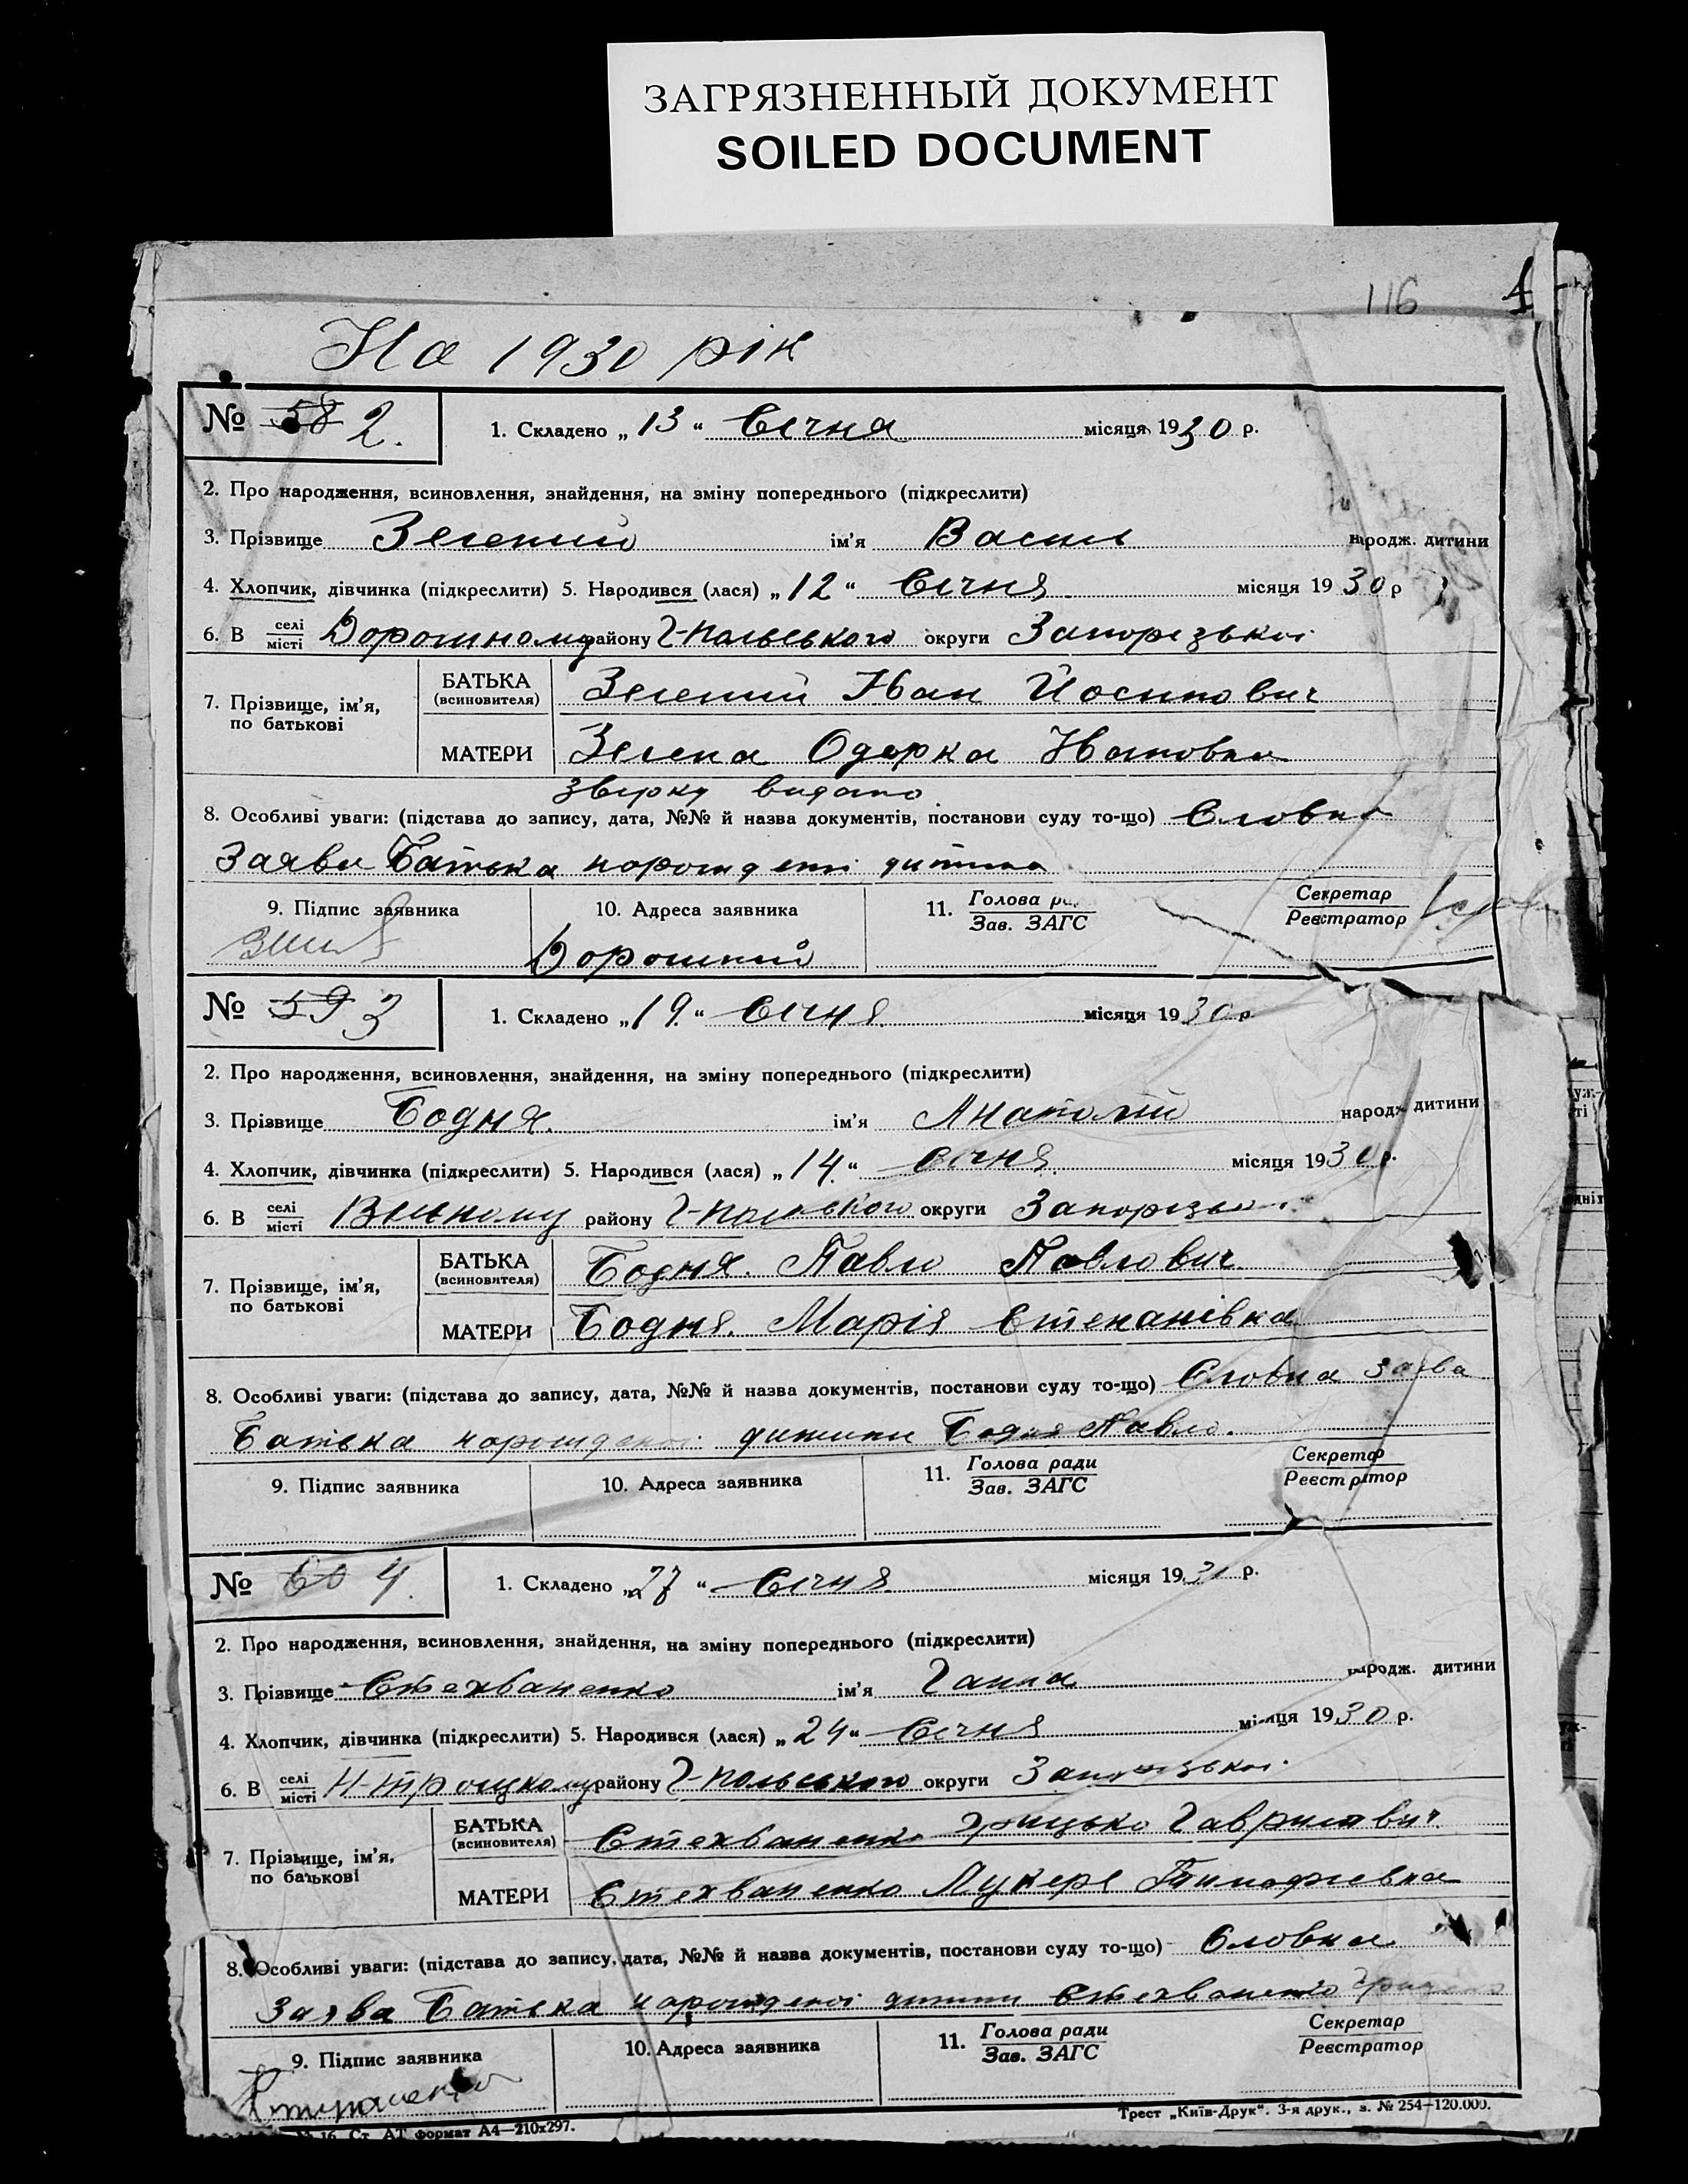 ЗАГРЯЗНЕННЫЙ ДОКУМЕНТ
SOILED DOCUMENT
116
На 1930 рік
№ 58 2. 1. Складено „13“ Січня місяця 1930 р.
2. Про народження, всиновлення, знайдення, на зміну попереднього (підкреслити)
3. Прізвище Зелений ім'я Василь народж. дитини
4. Хлопчик, дівчинка (підкреслити) 5. Народився (лася) „12“ Січня місяця 1930 р
6. В селі/місті Дорошному району Г-Польського округи Запорізької
7. Прізвище, ім'я, по батькові
БАТЬКА (всиновителя) Зелений Иван Йосипович
МАТЕРИ Зелена Одарка Ивановна
звірку видано
8. Особливі уваги: (підстава до запису, дата, №№ й назва документів, постанови суду то-що) Словна
Заява Батька
9. Підпис заявника 10. Адреса заявника 11. Голова Зав. ЗАГС Секретар Реєстратор
№ 59 3 1. Складено „19.“ Січня місяця 1930 р
2. Про народження, всиновлення, знайдення, на зміну попереднього (підкреслити)
3. Прізвище Бодня. ім'я Анатолій народж дитини
4. Хлопчик, дівчинка (підкреслити) 5. Народився (лася) „14.“ Січня місяця 1930 р.
6. В селі/місті Вільному району Г-Польського округи Запорізької
7. Прізвище, ім'я, по батькові
БАТЬКА (всиновителя) Бодня. Павло Павлович
МАТЕРИ Бодня. Марія Степанівна
8. Особливі уваги: (підстава до запису, дата, №№ й назва документів, постанови суду то-що) Словна заява
Батька дитини Бодня Павло.
9. Підпис заявника 10. Адреса заявника 11. Голова ради Зав. ЗАГС Секретар Реєстратор
№ 60 4. 1. Складено „27“ Січня місяця 193 р.
2. Про народження, всиновлення, знайдення, на зміну попереднього (підкреслити)
3. Прізвище Стехваненко ім'я Ганна народж. дитини
4. Хлопчик, дівчинка (підкреслити) 5. Народився (лася) „24“ Січня місяця 1930 р.
6. В селі/місті Н-Троцкому району Г-Польського округи Запорізької
7. Прізвище, ім'я, по батькові
БАТЬКА (всиновителя) Стехваненко Грицько Гаврилович
МАТЕРИ Стехваненко Лукеря Тимофіевна
8. Особливі уваги: (підстава до запису, дата, №№ й назва документів, постанови суду то-що) Словна
Заява Батька дитини Стехваненко
9. Підпис заявника 10. Адреса заявника 11. Голова ради Зав. ЗАГС Секретар Реєстратор
16 Ст. АТ формат А4—210х297.
Трест „Київ-Друк“. 3-я друк., з. № 254—120.000.